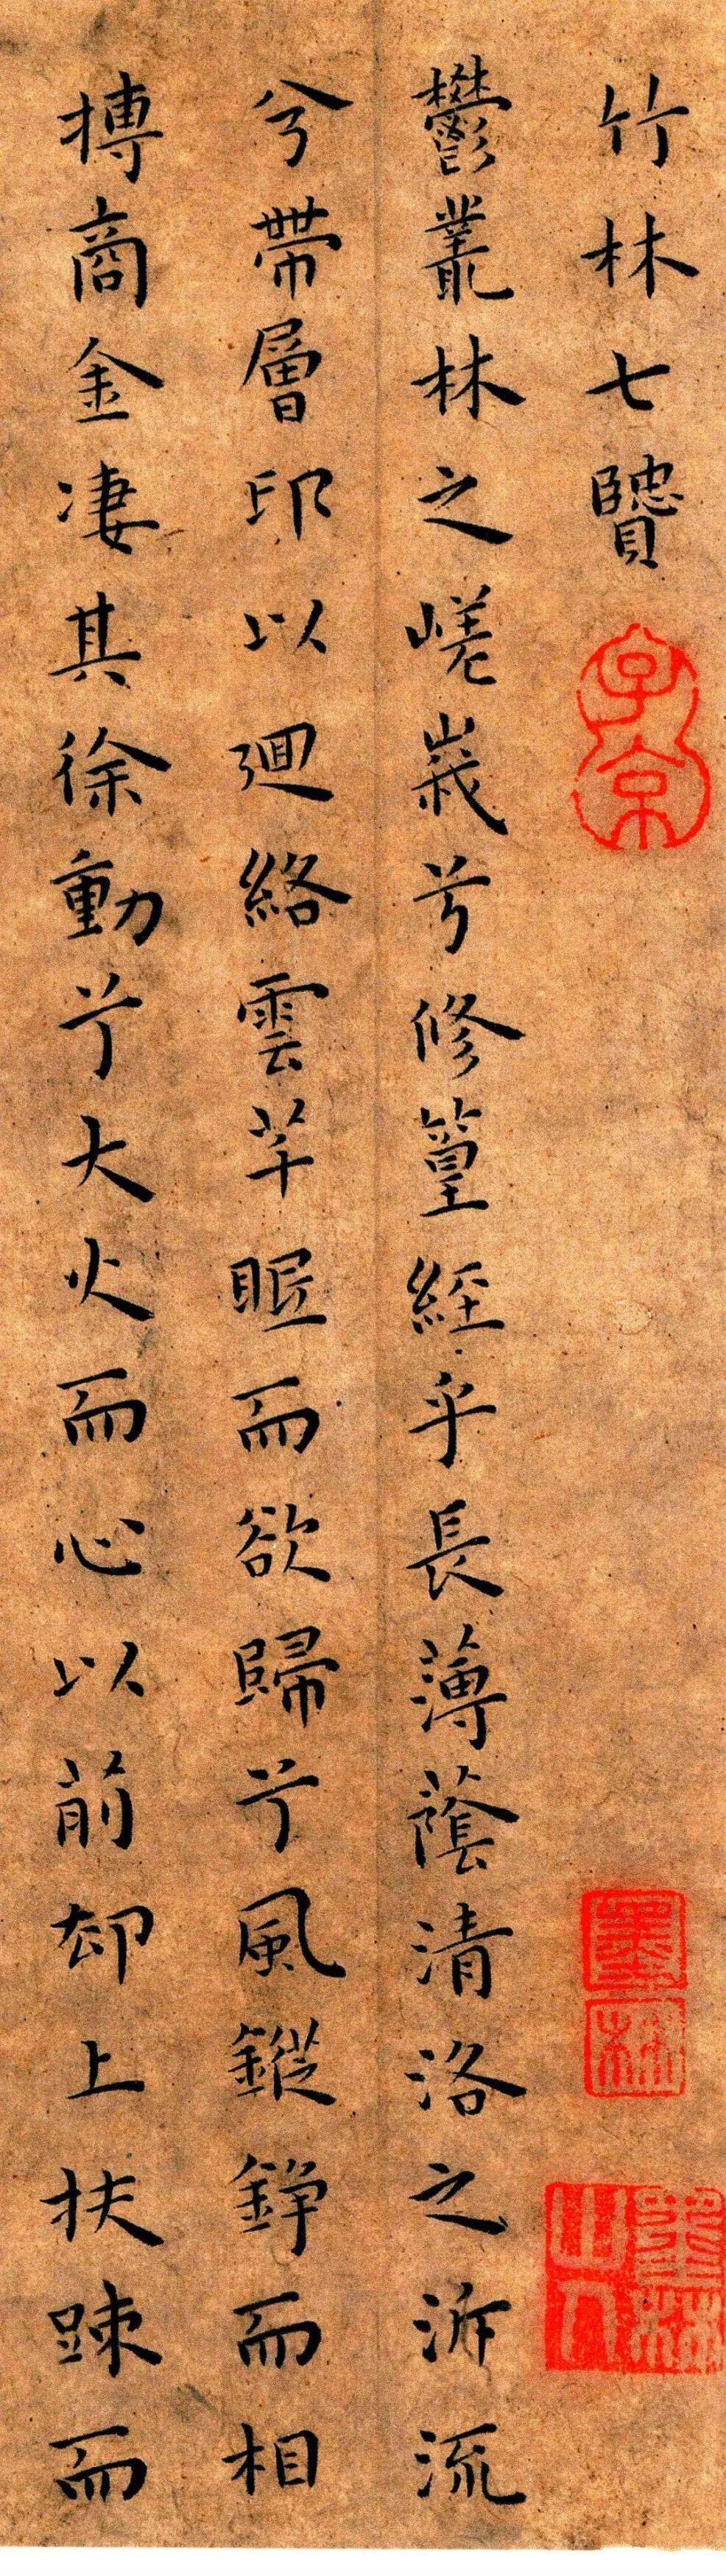 竹林七贒
鬱叢林之嵯峩兮修篁經乎長薄蔭清洛之泝流
兮帶層卭以廻絡雲芊眠而欲歸兮風鏦錚而相
搏商金凄其徐動兮大火而心以前却上扶踈而
子京
墨林
墨林山人